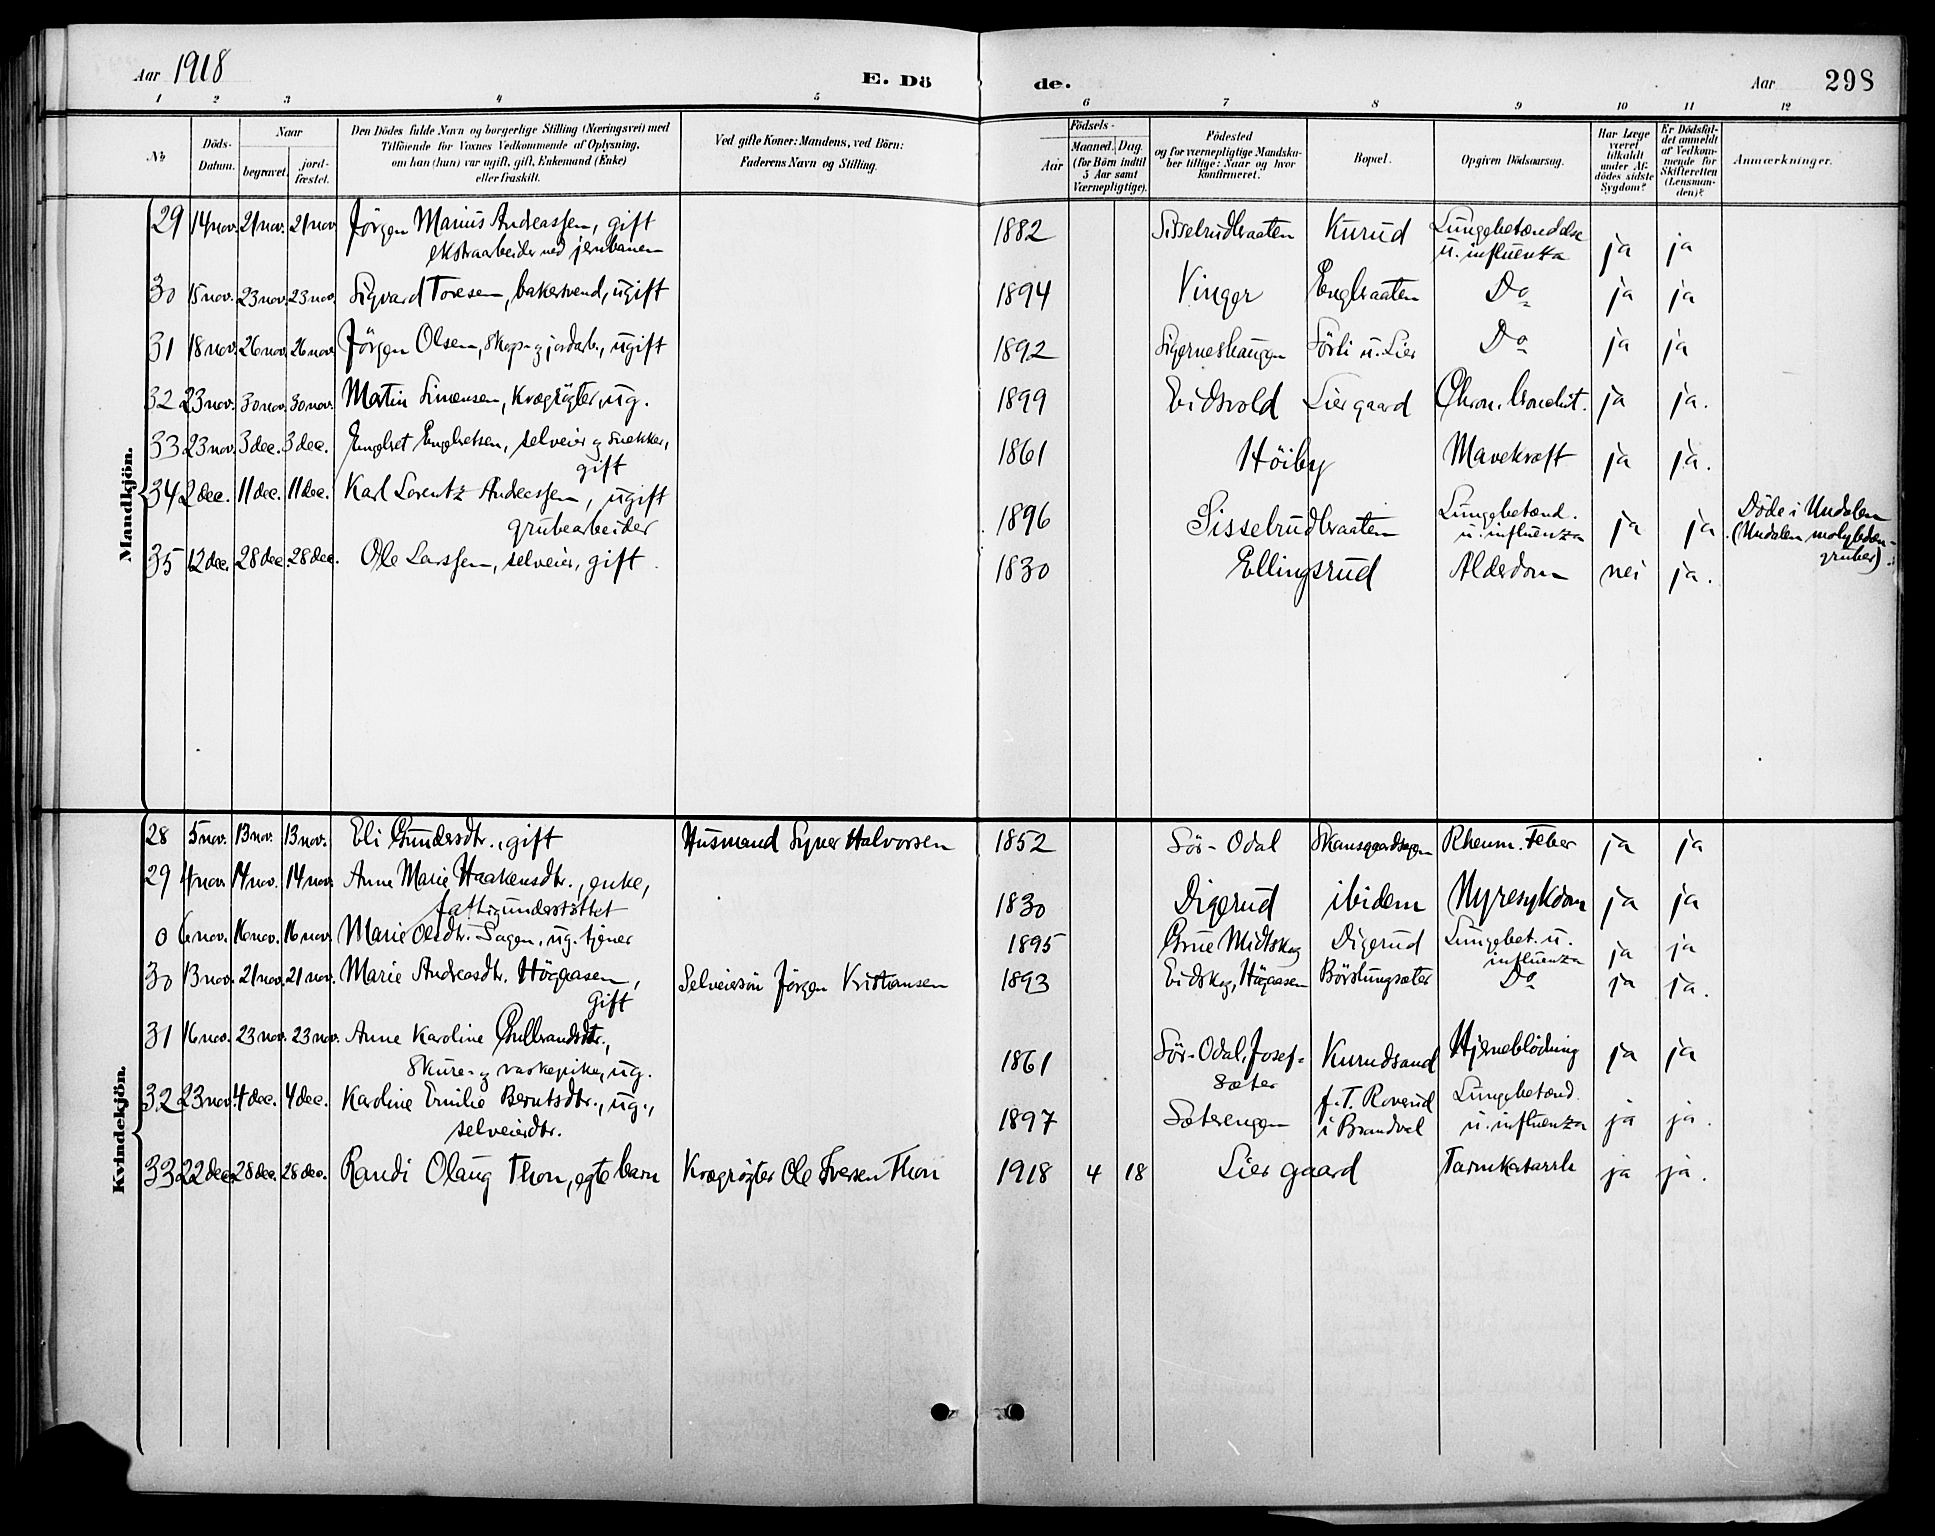 Aar 1918
E. Dö
de.
Aar 298
1 2 3 4 5 6 7 8 9 10 11 12
No
Döds-Datum.
Naar begravet. jordfæstet.
Den Dödes fulde Navn og borgerlige Stilling (Næringsvei) med
Tilföiende for Voxnes Vedkommende af Oplysning,
om han (hun) var ugift, gift, Enkemand (Enke)
eller fraskilt.
Ved gifte Koner: Mandens, ved Börn:
Faderens Navn og Stilling.
Födsels-
Aar Maaned. Dag.
(for Börn indtil
5 Aar samt
Værnepligtige).
Födested
og for værnepligtige Mandskaber tillige: Naar og hvor
konfirmeret.
Bopæl.
Opgiven Dödsaarsag.
Har Læge været tilkaldt under Afdödes sidste Sygdom?
Er Dödsfaldet anmeldt af Vedkommende for Skifteretten (Lensmanden)?
Anmærkninger.
Mandkjön.
29 14 nov. 21 nov. 21 nov Jörgen Marius Andreassen, gift 1882 Sisselrudbraaten Kurud Lungebetændelse ja ja
ekstraarbeider ved jernbanen u. influenza
30 15 nov. 23 nov. 23 nov. Sigvard Toresen, bakersvend, ugift 1894 Vinger Engbraaten Do ja ja
31 18 nov. 26 nov. 26 nov. Jörgen Olsen, skogs- og jordarb., ugift 1892 Sigerneshaugen Sörli u. Lier Do ja ja
32 23 nov. 30 nov. 30 nov. Martin Simensen, Kvægrögter, ug. 1899 Eidsvold Lier gaard Chron. bronchit. ja ja.
33 23 nov. 3 dec. 3 dec. Engebret Engebretsen, selveier og snekker, 1861 Höiby Mavekræft ja ja.
gift
34 2 dec. 11 dec. 11 dec. Karl Lorentz Andreassen, ugift 1896 Sisselrudbraaten Lungebetænd. ja ja Döde i Undalen
grubearbeider u. influenza (Undalen molybdengruber).
35 12 dec. 28 dec. 28 dec. Ole Larssen, selveier, gift. 1830 Ellingsrud Alderdom nei ja.
Kvindekjön.
28 5 nov. 13 nov. 13 nov. Eli Gundersdtr., gift Husmand Syver Halvorsen 1852 Sör-Odal Rheum. Feber ja ja
29 4 nov 14 nov. 14 nov. Anne Marie Haakensdtr., enke, 1830 Digerud ibidem Nyresykdom ja ja
fattigunderstöttet
0 6 nov. 16 nov. 16 nov. Marie Olsdtr. Sagen, ug. tjener 1895 Grue Midtskog Digerud Lungebet. u. ja ja
influenza
30 13 nov. 21 nov. 21 nov. Marie Andreasdtr. Högaasen, Selveiersön Jörgen Kristiansen 1893 Eidskog, Högaasen Börstungsæter Do ja ja.
gift
31 16 nov. 23 nov. 23 nov. Anne Karoline Gulbrandsdtr., 1861 Sör-Odal, Josefsæter Kurudsand Hjerneblödning ja ja
Skure- og vaskepike, ug.
32 23 nov. 4 dec. 4 dec. Karoline Emilie Berntsdtr., ug., 1897 Sæterengen f.T. Roverud Lungebetænd. ja ja.
selveierdtr. i Brandval u. influenza
33 22 dec. 28 dec. 28 dec. Randi Olaug Thon, egte barn Kvægrögter Ole Iversen Thon 1918 4 18 Lier gaard Tarmkatarrh ja ja.